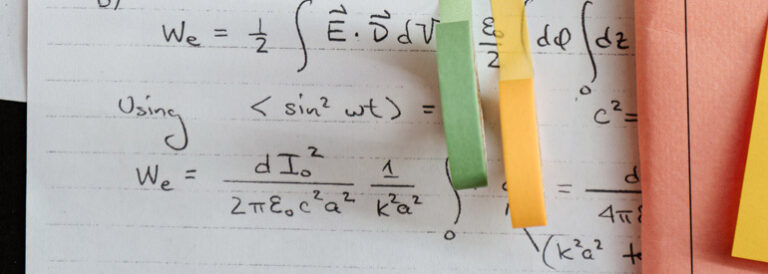 We = 1/2 ∫ E⃗ · D⃗ dV ε₀/2 dφ ∫₀ dz
Using ⟨ sin² ωt ⟩ = c² =
We = d I₀² / 2πε₀c²a² 1 / k²a² ∫₀ = d / 4πε
(k²a²